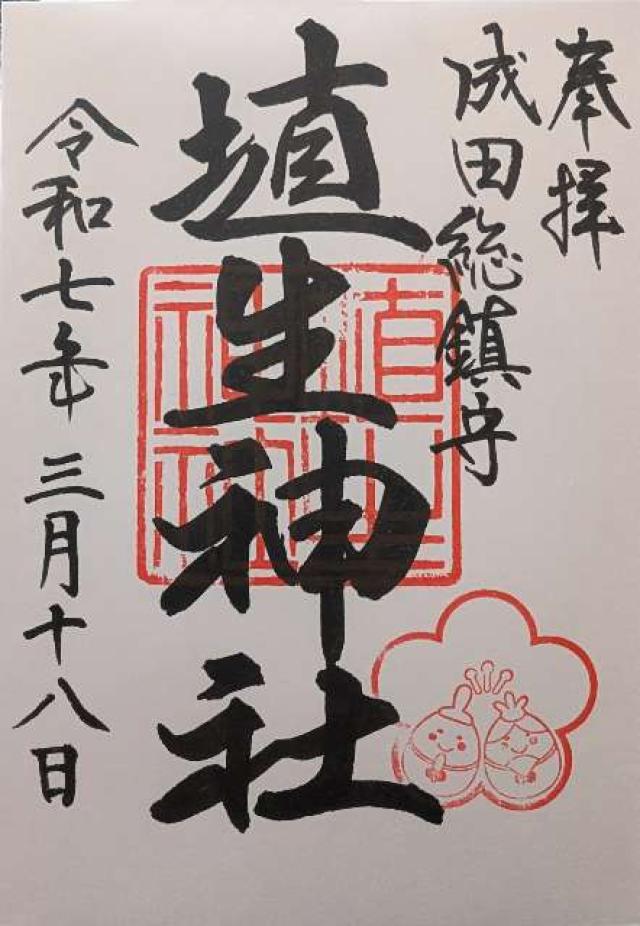 奉拝
成田総鎮守
埴生神社
令和七年三月十八日